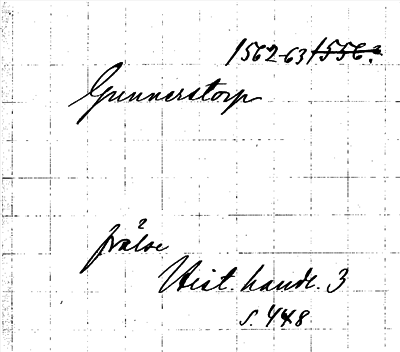 1562-63 1556?
Gunnarstorp
frälse
Hist. handl. 3
s. 448